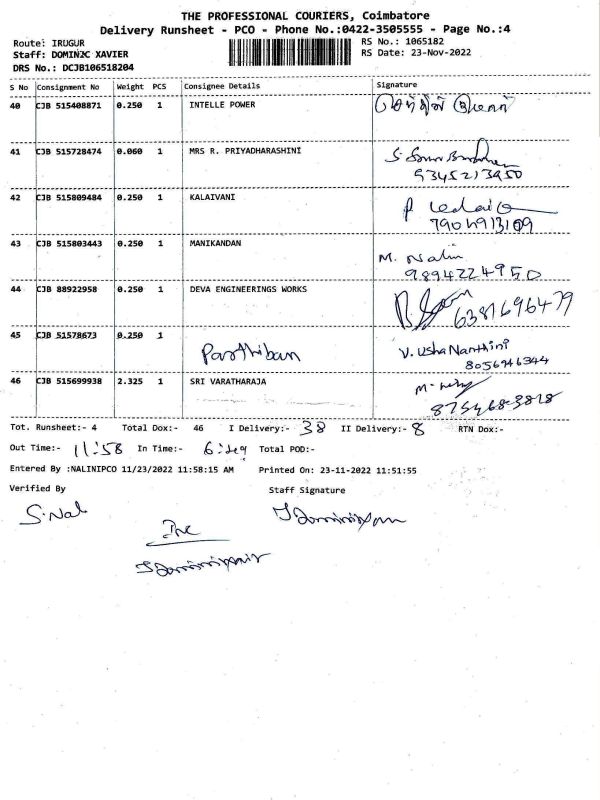 THE PROFESSIONAL COURIERS, Coimbatore
Delivery Runsheet - PCO - Phone No.:0422-3505555 - Page No.:4
Route: IRUGUR RS No.: 1065182
Staff: DOMINIC XAVIER RS Date: 23-Nov-2022
DRS No.: DCJB106518204
S No Consignment No Weight PCS Consignee Details Signature
40 CJB 515408871 0.250 1 INTELLE POWER
41 CJB 515728474 0.060 1 MRS R. PRIYADHARASHINI
9345213950
42 CJB 515809484 0.250 1 KALAIVANI
7904913109
43 CJB 515803443 0.250 1 MANIKANDAN M. Nalin
9894224950
44 CJB 88922958 0.250 1 DEVA ENGINEERINGS WORKS
6381696479
45 CJB 51578673 0.250 1 Parthiban V. Usha Nanthini
8056946344
46 CJB 515699938 2.325 1 SRI VARATHARAJA
Tot. Runsheet:- 4 Total Dox:- 46 I Delivery:- 38 II Delivery:- 8 RTN Dox:-
Out Time:- 11:58 In Time:- Total POD:-
Entered By :NALINIPCO 11/23/2022 11:58:15 AM Printed On: 23-11-2022 11:51:55
Verified By Staff Signature
S.Nal